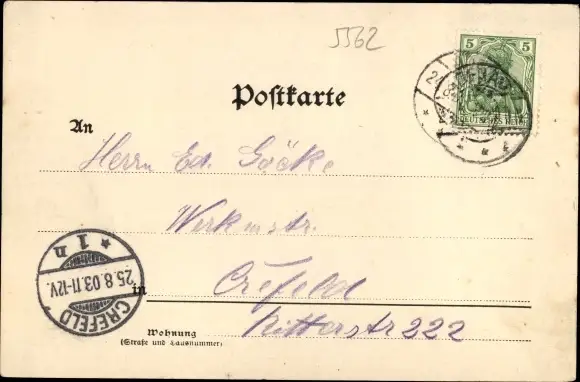 5562
5
Postkarte
An
Herrn Ed. Göcke
Werkmstr.
in Crefeld
Ritterstr 222
Wohnung
(Straße und Hausnummer)
CREFELD
25.8.03.11-12V.
* 1 n